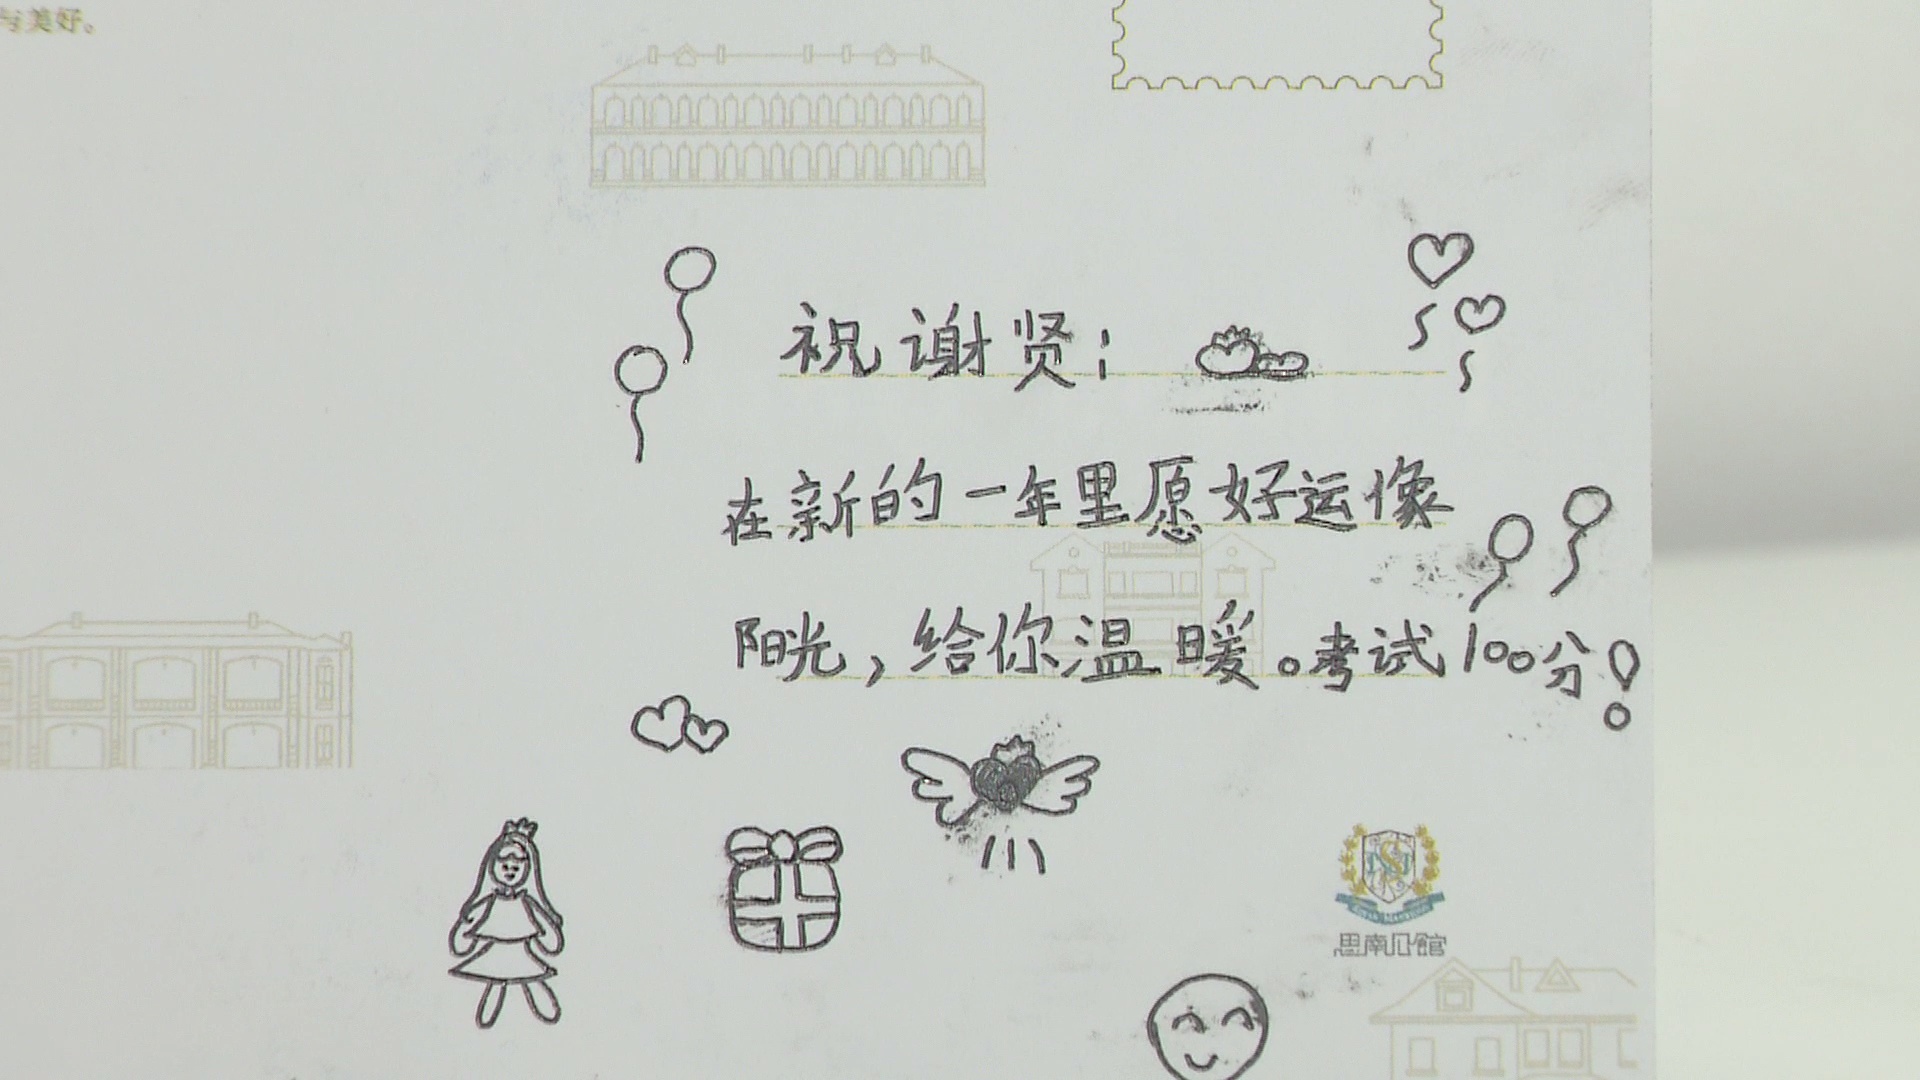 与美好。
祝谢贤：
在新的一年里愿好运像
阳光，给你温暖。考试100分！
思南公馆